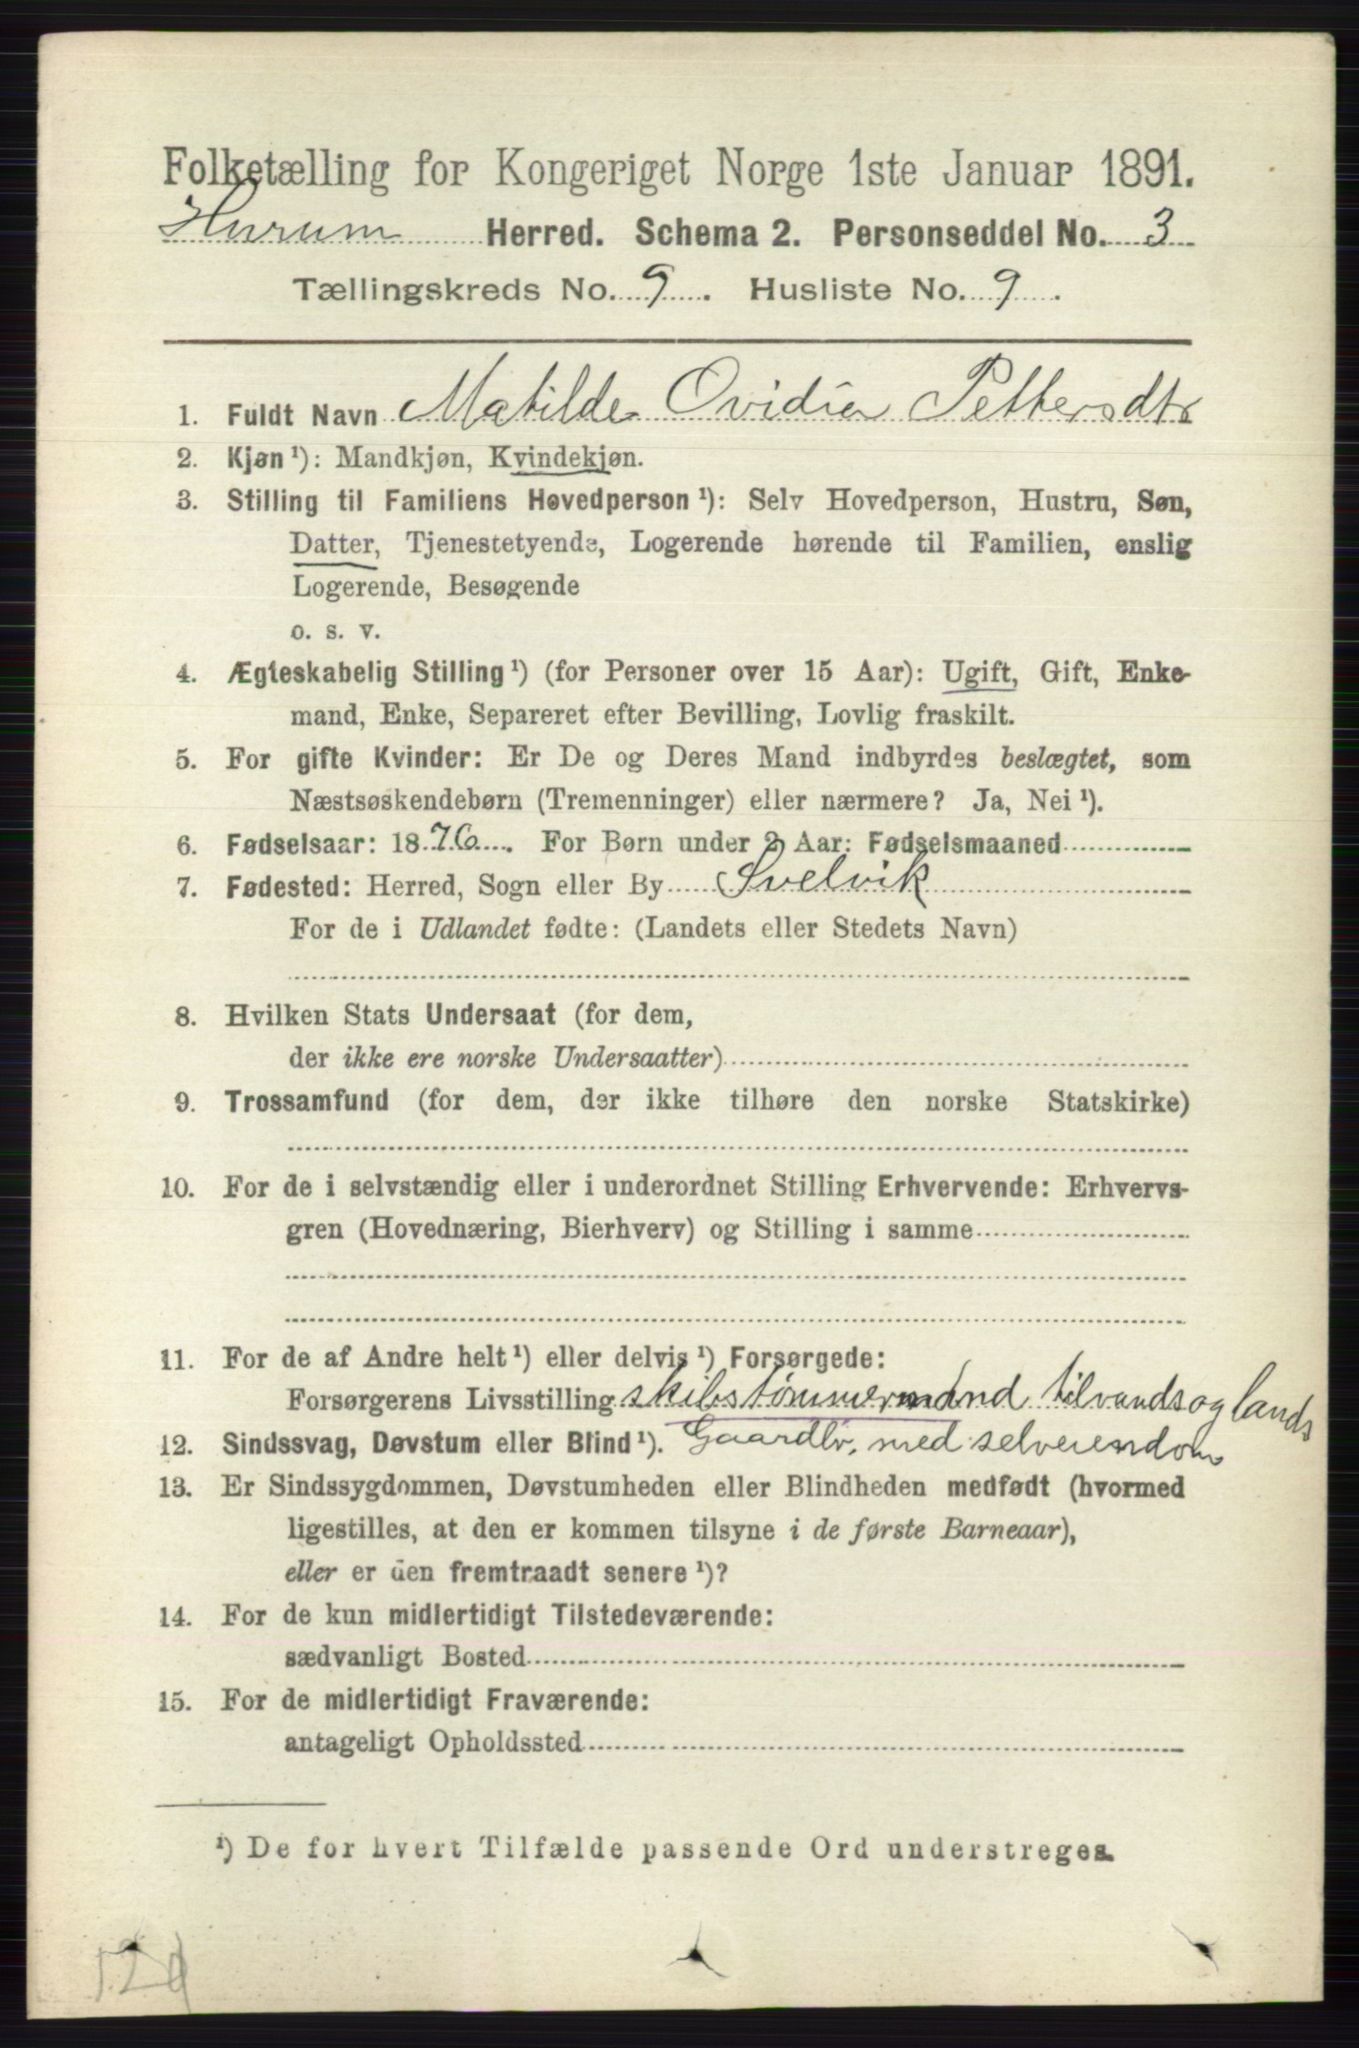 Folketælling for Kongeriget Norge 1ste Januar 1891.
Hurum Herred. Schema 2. Personseddel No. 3
Tællingskreds No. 9. Husliste No. 9.
1. Fuldt Navn Matilde Ovidia Pettersdtr
2. Kjøn ¹): Mandkjøn, Kvindekjøn.
3. Stilling til Familiens Hovedperson ¹): Selv Hovedperson, Hustru, Søn,
Datter, Tjenestetyende, Logerende hørende til Familien, enslig
Logerende, Besøgende
o. s. v.
4. Ægteskabelig Stilling ¹) (for Personer over 15 Aar): Ugift, Gift, Enke-
mand, Enke, Separeret efter Bevilling, Lovlig fraskilt.
5. For gifte Kvinder: Er De og Deres Mand indbyrdes beslægtet, som
Næstsøskendebørn (Tremenninger) eller nærmere? Ja, Nei ¹).
6. Fødselsaar: 1876. For Børn under 2 Aar: Fødselsmaaned
7. Fødested: Herred, Sogn eller By Svelvik
For de i Udlandet fødte: (Landets eller Stedets Navn)
8. Hvilken Stats Undersaat (for dem,
der ikke ere norske Undersaatter)
9. Trossamfund (for dem, der ikke tilhøre den norske Statskirke)
10. For de i selvstændig eller i underordnet Stilling Erhvervende: Erhvervs-
gren (Hovednæring, Bierhverv) og Stilling i samme
11. For de af Andre helt ¹) eller delvis ¹) Forsørgede:
Forsørgerens Livsstilling skibstømmermand tilvands og lands
12. Sindssvag, Døvstum eller Blind ¹). Gaardbr, med selveiendom
13. Er Sindssygdommen, Døvstumheden eller Blindheden medfødt (hvormed
ligestilles, at den er kommen tilsyne i de første Barneaar),
eller er den fremtraadt senere ¹)?
14. For de kun midlertidigt Tilstedeværende:
sædvanligt Bosted
15. For de midlertidigt Fraværende:
antageligt Opholdssted
¹) De for hvert Tilfælde passende Ord understreges.